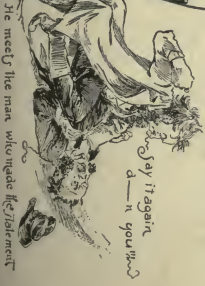 "Say it again
d—n you!!"
He meets the man who made the statement